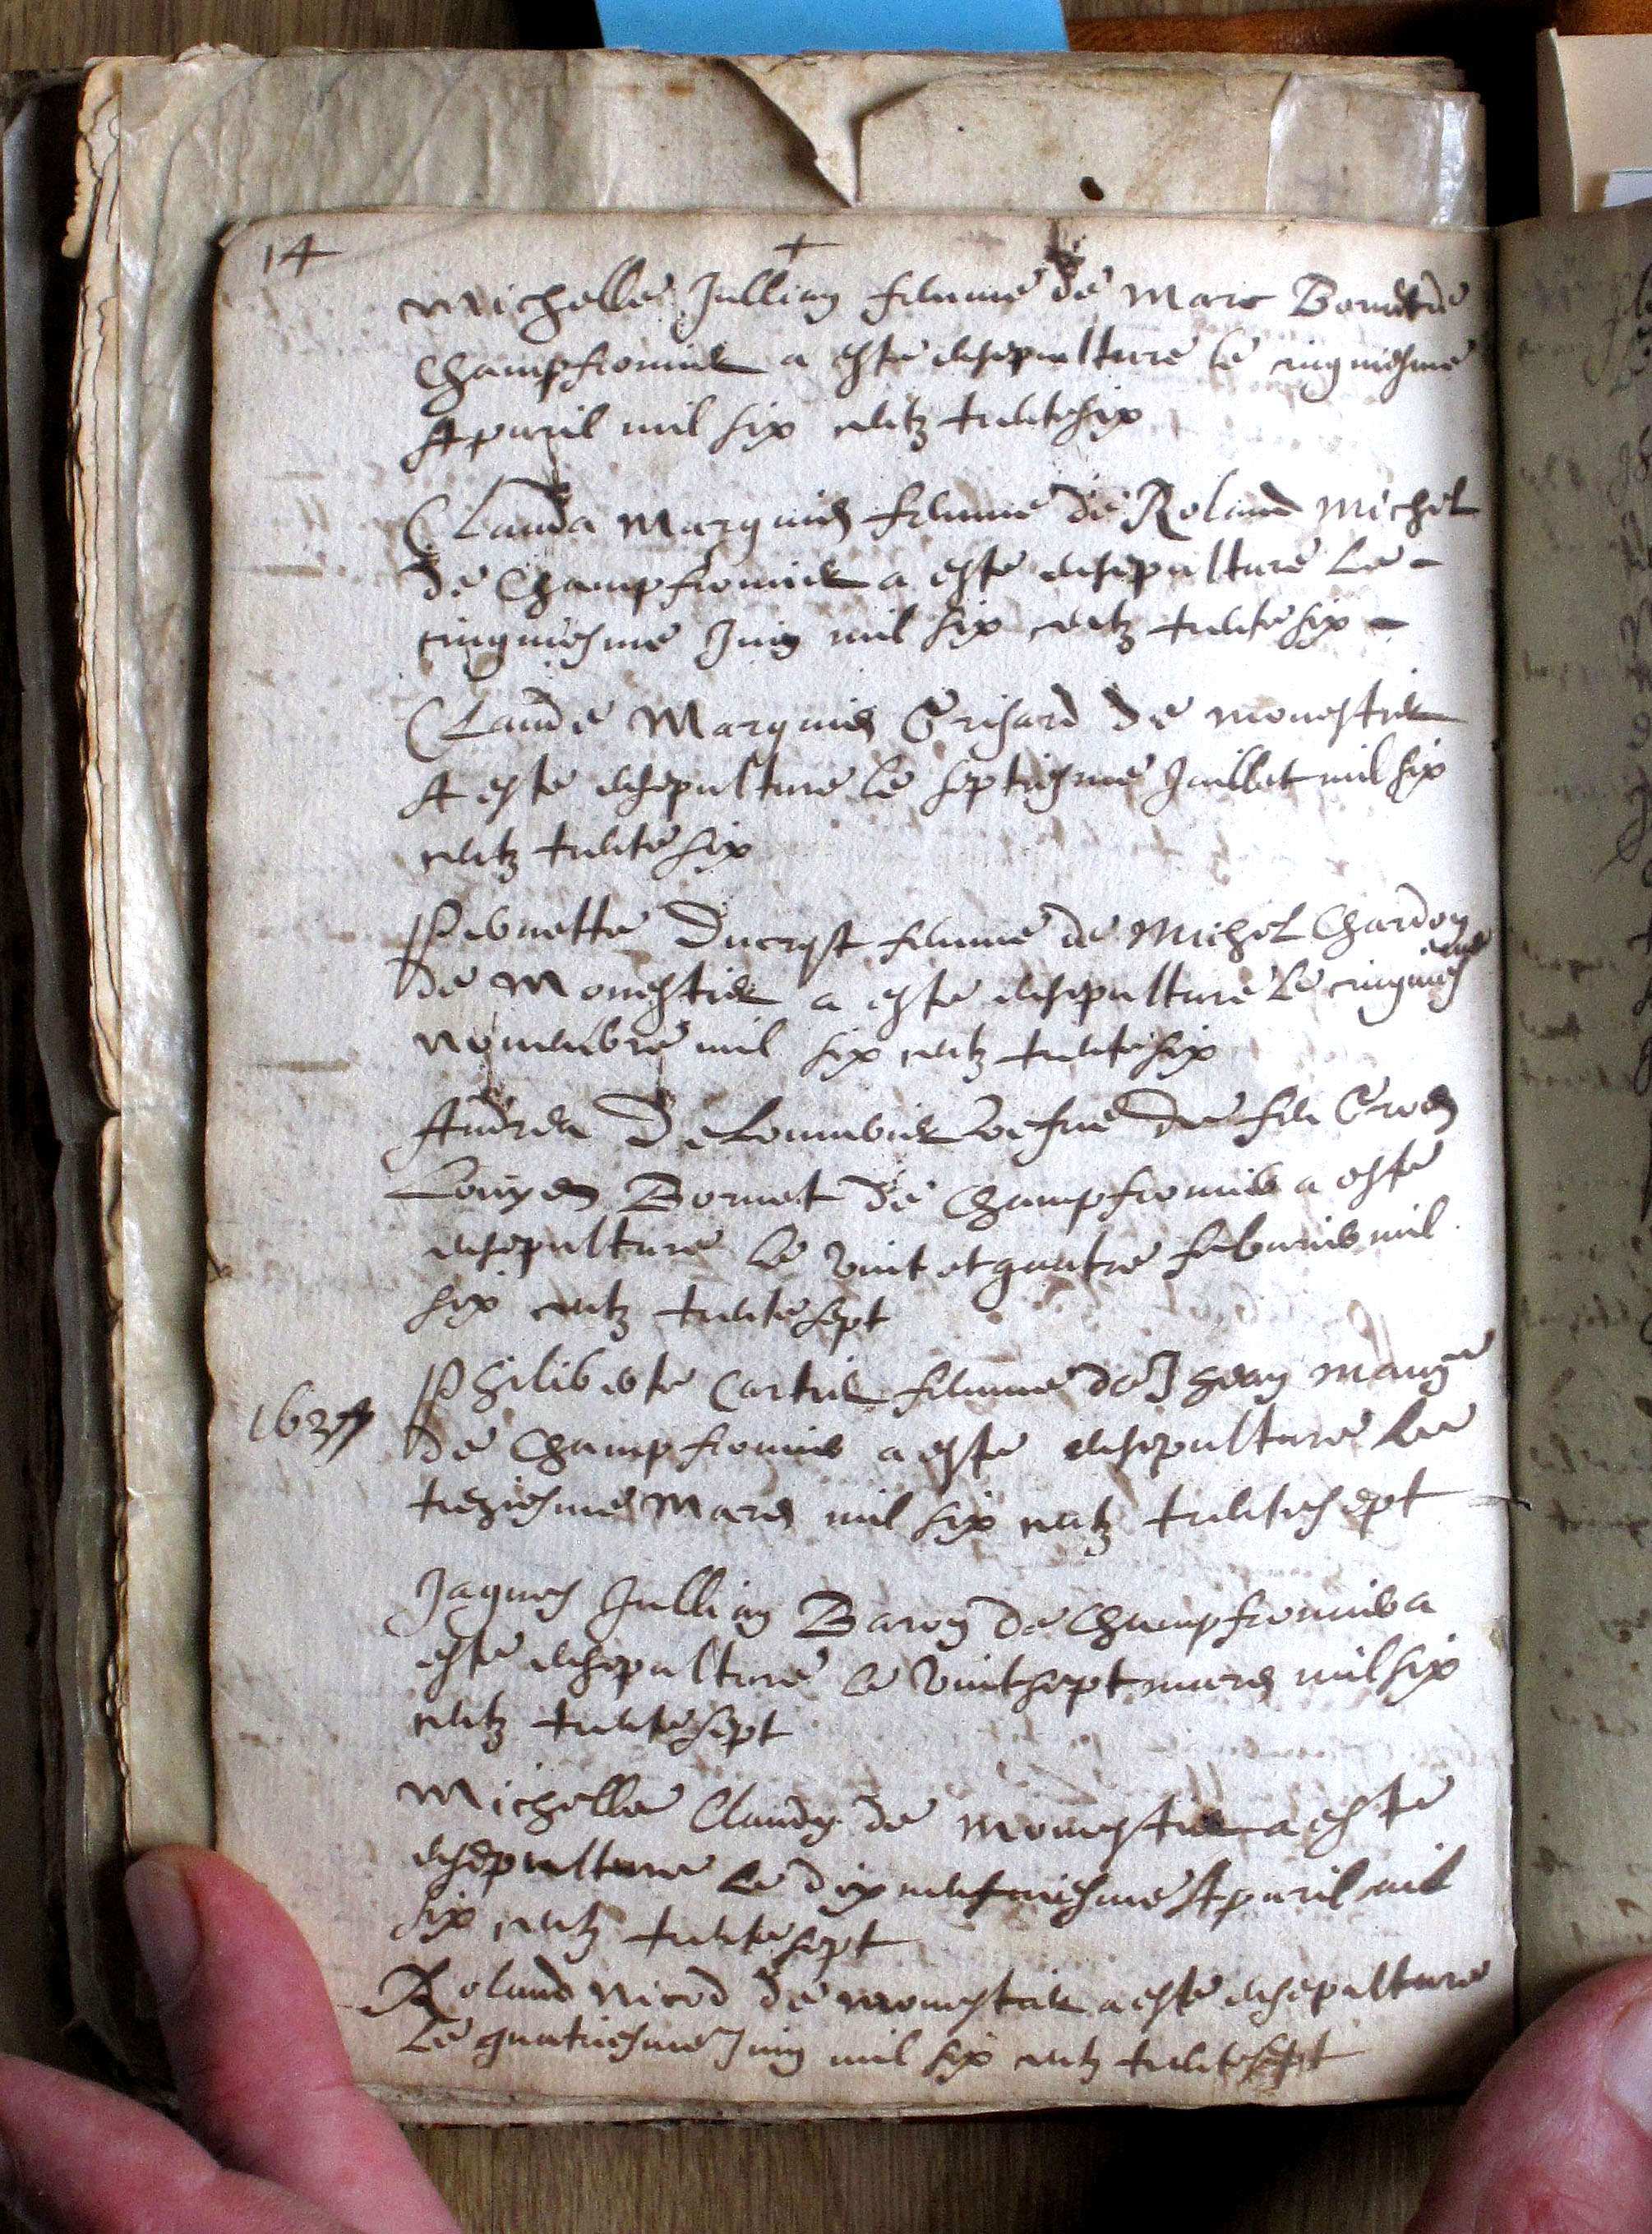 14 +
Michelle Jullian femme de Marc Bornet de
Champfromier a este ensepulture le cinquiesme
Apvril mil six centz trente six
Clauda Marquis femme de Roland Michel
de Champfromier a este ensepulture le -
cinquiesme Juing mil six centz trente six -
Claude Marquis Grisard de monestier
A este ensepulture le septiesme Juillet mil six
centz trente six
Pernette Ducrest femme de Michel Chardon
de Monestier a este ensepulture le cinquies
eme
novembre mil six centz trente six
Andrea De Lombier vefve de feu
Louys Bornet de Champfromier a este
ensepulture le vint et quatre febvrier mil
six centz trente sept
1637
Philiberte Cartier femme de Jhean
de Champfromier a este ensepulture le
treziesme Mars mil six centz trente sept
Jaques Jullian Baron de Champfromier a
este ensepulture le vint sept mars mil six
centz trente sept
Michelle Claudy de monestier a este
ensepulture le dix neufviesme Apvril mil
six centz trente sept
Roland Nicod de monestier a este ensepulture
le quatriesme Juing mil six centz trente sept